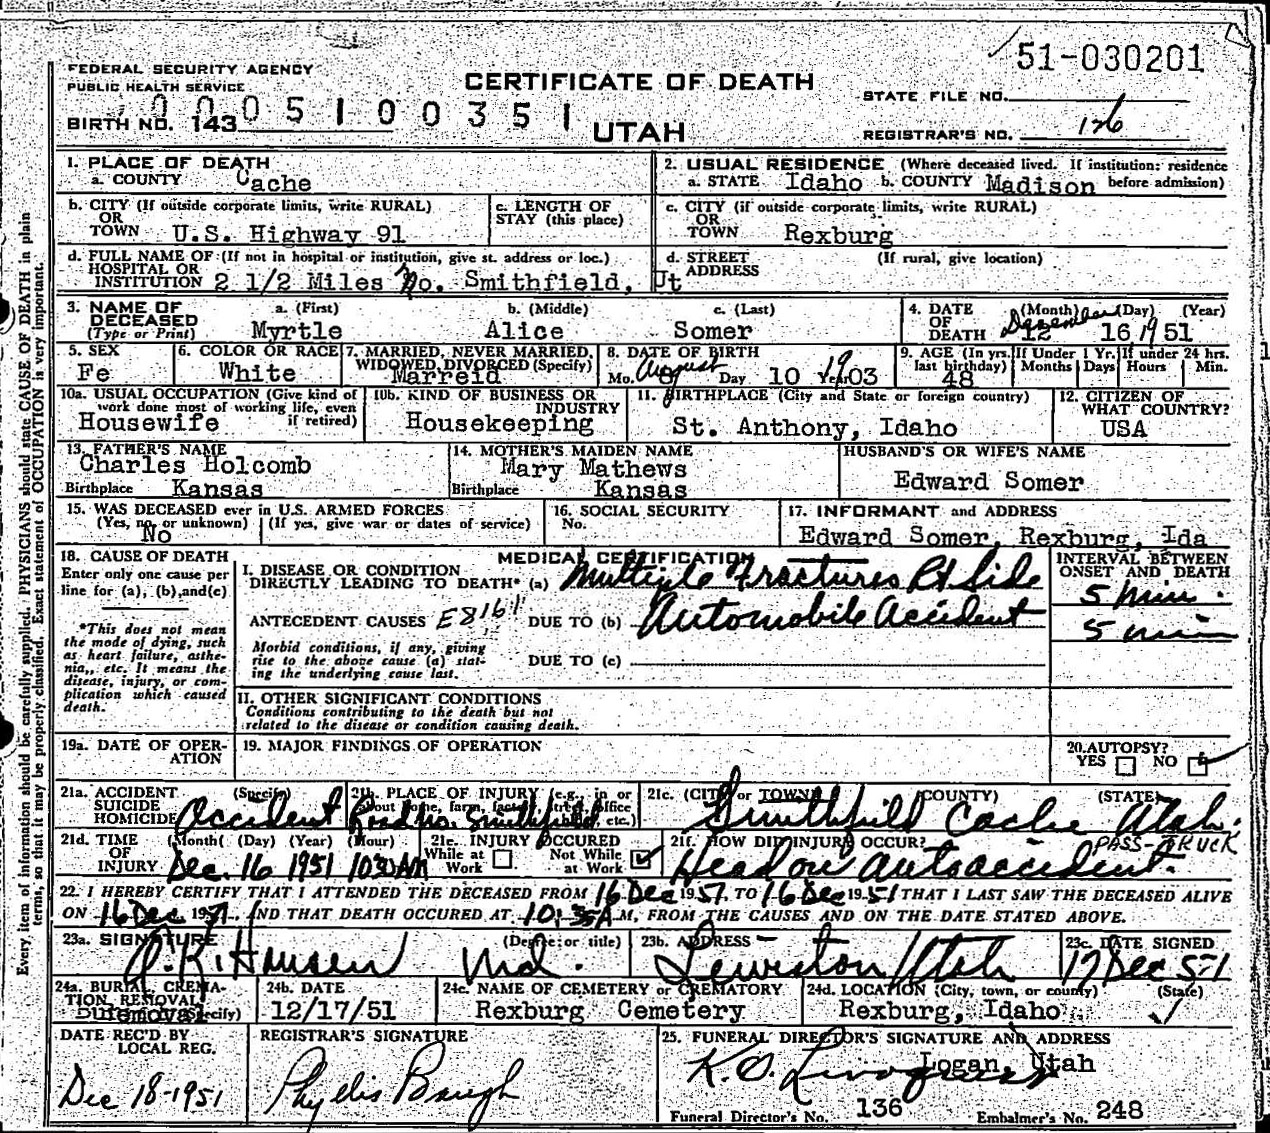 51-030201
FEDERAL SECURITY AGENCY
PUBLIC HEALTH SERVICE
CERTIFICATE OF DEATH
STATE FILE NO.
00051 00351
BIRTH NO. 143
UTAH
REGISTRAR'S NO. 126
1. PLACE OF DEATH
a. COUNTY Cache
2. USUAL RESIDENCE (Where deceased lived. If institution: residence before admission)
a. STATE Idaho b. COUNTY Madison
b. CITY (If outside corporate limits, write RURAL) OR TOWN U.S. Highway 91
c. LENGTH OF STAY (this place)
c. CITY (if outside corporate limits, write RURAL) OR TOWN Rexburg
d. FULL NAME OF (If not in hospital or institution, give st. address or loc.) HOSPITAL OR INSTITUTION 2 1/2 Miles No. Smithfield, Ut
d. STREET ADDRESS (If rural, give location)
3. NAME OF DECEASED (Type or Print)
a. (First) Myrtle
b. (Middle) Alice
c. (Last) Somer
4. DATE OF DEATH (Month) (Day) (Year)
December 12 16 1951
5. SEX Fe
6. COLOR OR RACE White
7. MARRIED, NEVER MARRIED, WIDOWED, DIVORCED (Specify) Marreid
8. DATE OF BIRTH Mo. August 8 Day 10 Year 1903
9. AGE (In yrs. last birthday) 48
If Under 1 Yr. Months Days
If under 24 hrs. Hours Min.
10a. USUAL OCCUPATION (Give kind of work done most of working life, even if retired) Housewife
10b. KIND OF BUSINESS OR INDUSTRY Housekeeping
11. BIRTHPLACE (City and State or foreign country) St. Anthony, Idaho
12. CITIZEN OF WHAT COUNTRY? USA
13. FATHER'S NAME Charles Holcomb
Birthplace Kansas
14. MOTHER'S MAIDEN NAME Mary Mathews
Birthplace Kansas
HUSBAND'S OR WIFE'S NAME
Edward Somer
15. WAS DECEASED ever in U.S. ARMED FORCES
(Yes, no or unknown) (If yes, give war or dates of service)
No
16. SOCIAL SECURITY No.
17. INFORMANT and ADDRESS
Edward Somer, Rexburg, Ida
18. CAUSE OF DEATH
Enter only one cause per line for (a), (b), and (c)
*This does not mean the mode of dying, such as heart failure, asthenia,, etc. It means the disease, injury, or complication which caused death.
MEDICAL CERTIFICATION
I. DISEASE OR CONDITION DIRECTLY LEADING TO DEATH* (a) Multiple Fractures Rt Side
ANTECEDENT CAUSES E816 DUE TO (b) Automobile Accident
Morbid conditions, if any, giving rise to the above cause (a) stating the underlying cause last.
DUE TO (c)
INTERVAL BETWEEN ONSET AND DEATH
5 min.
5 min
II. OTHER SIGNIFICANT CONDITIONS
Conditions contributing to the death but not related to the disease or condition causing death.
19a. DATE OF OPERATION
19. MAJOR FINDINGS OF OPERATION
20. AUTOPSY?
YES NO
21a. ACCIDENT SUICIDE HOMICIDE (Specify) Accident
21b. PLACE OF INJURY (e.g., in or about home, farm, factory, street, office etc.) Road no. Smithfield
21c. (CITY or TOWN) (COUNTY) (STATE)
Smithfield Cache Utah.
21d. TIME OF INJURY (Month) (Day) (Year) (Hour)
Dec. 16 1951 10:30 AM
21e. INJURY OCCURED
While at Work Not While at Work
21f. HOW DID INJURY OCCUR? PASS-TRUCK
Head on auto accident.
22. I HEREBY CERTIFY THAT I ATTENDED THE DECEASED FROM 16 Dec 1951 TO 16 Dec 1951 THAT I LAST SAW THE DECEASED ALIVE
ON 16 Dec 1951. AND THAT DEATH OCCURED AT 10:35A M, FROM THE CAUSES AND ON THE DATE STATED ABOVE.
23a. SIGNATURE (Degree or title) Hansen Md.
23b. ADDRESS Lewiston Utah
23c. DATE SIGNED 17 Dec 51
24a. BURIAL, CREMATION, REMOVAL (Specify) Removal
24b. DATE 12/17/51
24c. NAME OF CEMETERY or CREMATORY Rexburg Cemetery
24d. LOCATION (City, town, or county) (State) Rexburg, Idaho
DATE REC'D BY LOCAL REG.
Dec 18-1951
REGISTRAR'S SIGNATURE
Phyllis Baugh
25. FUNERAL DIRECTOR'S SIGNATURE AND ADDRESS
Logan, Utah
K. O.
Funeral Director's No. 136 Embalmer's No. 248
Every item of information should be carefully supplied. PHYSICIANS should state CAUSE OF DEATH in plain
terms, so that it may be properly classified. Exact statement of OCCUPATION is very important.